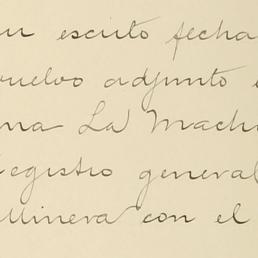 su escrito fecha
vuelvo adjunto
na La Mach
egistro general
Minera con el